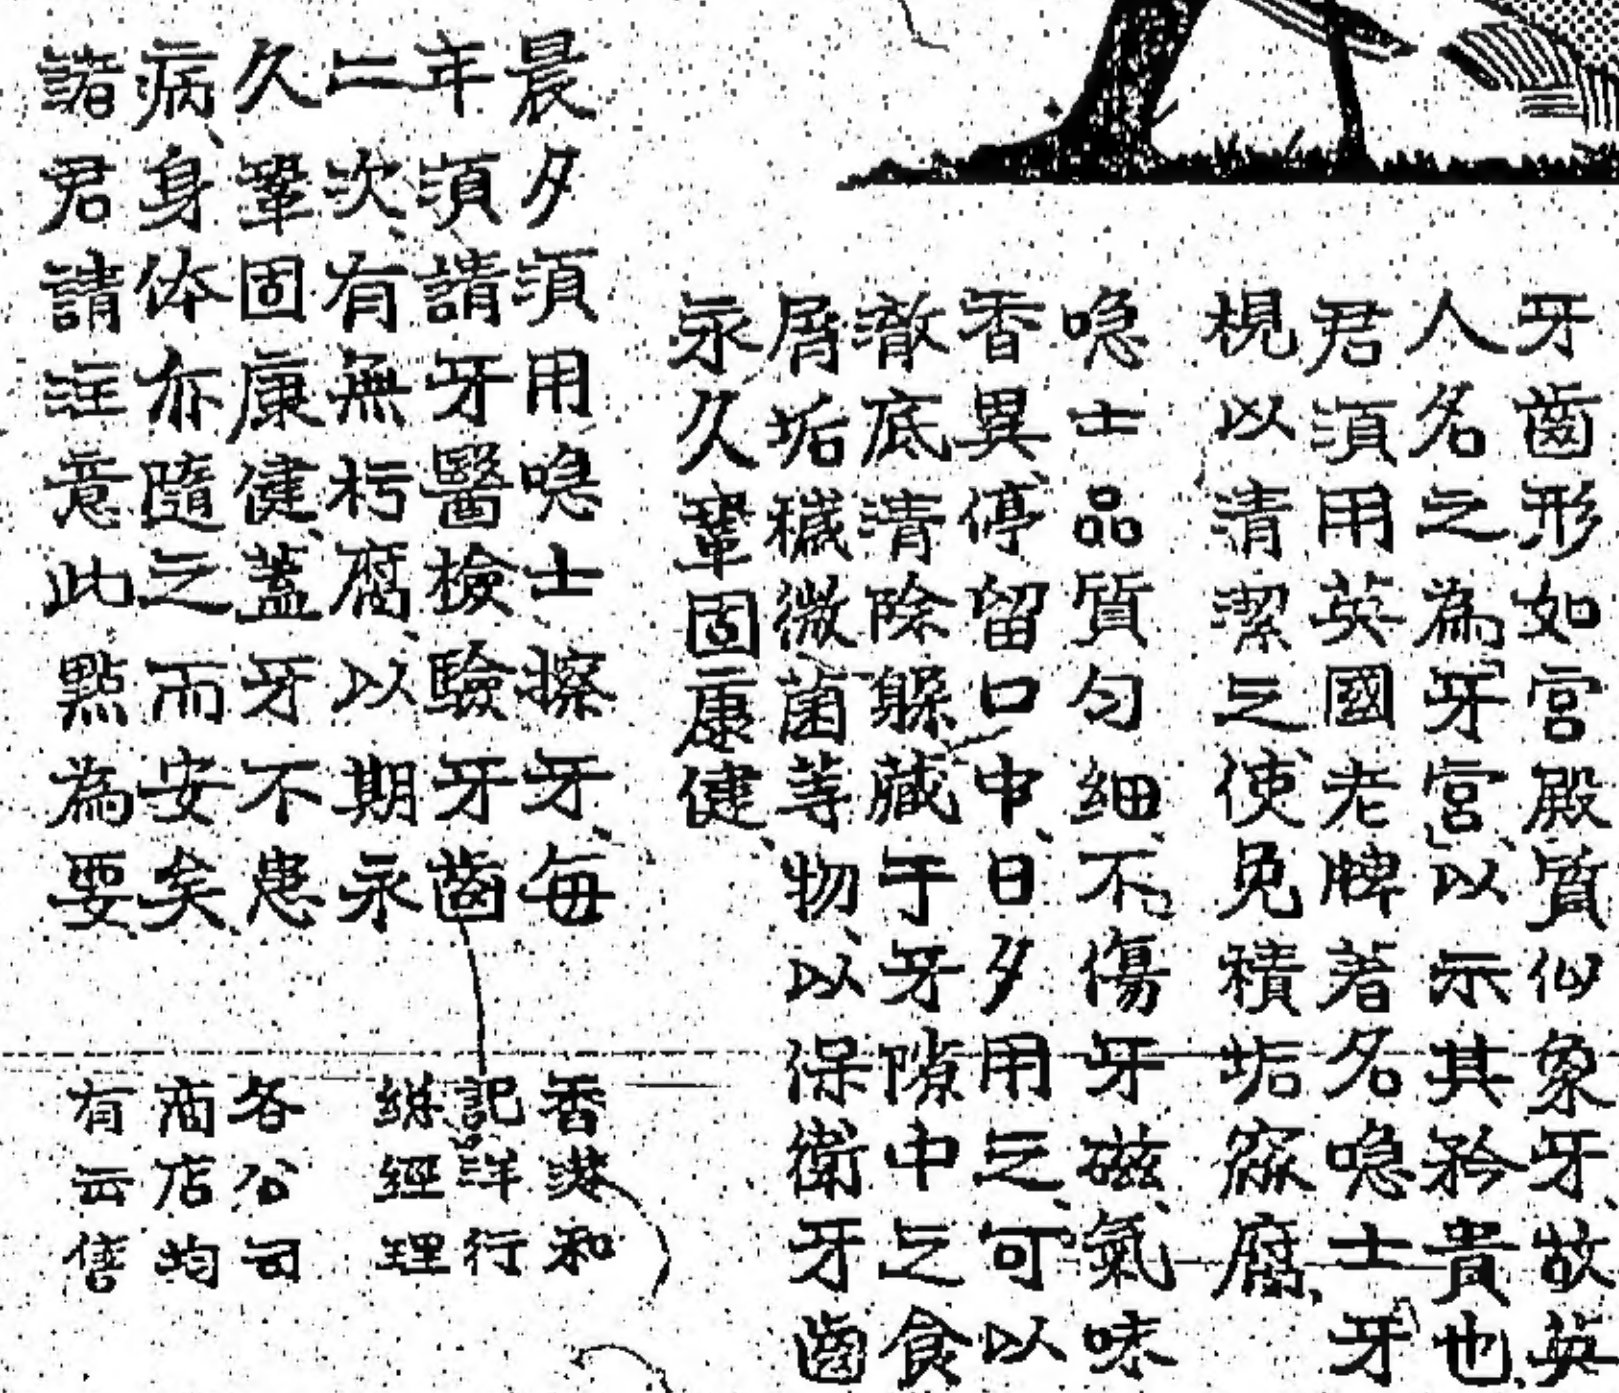 牙齒形如宮殿質似象牙、故英
人名之為牙宮、以示其矜貴也、
君須用英國老牌著名喼士牙
梘以清潔之使免積垢窳腐、
喼士品質勻細、不傷牙磁、氣味
香異、停留口中、日夕用之、可以
澈底清除躲藏于牙隙中之食
屑垢穢微菌等物、以保衛牙齒
永久鞏固康健、
晨夕須用喼士擦牙、每
年須請牙醫檢驗牙齒
二次、有無朽腐、以期永
久鞏固康健、蓋牙不患
病、身体亦隨之而安矣、
諸君請注意此點為要、
香港和
記洋行
總經理
各公司
商店均
有售